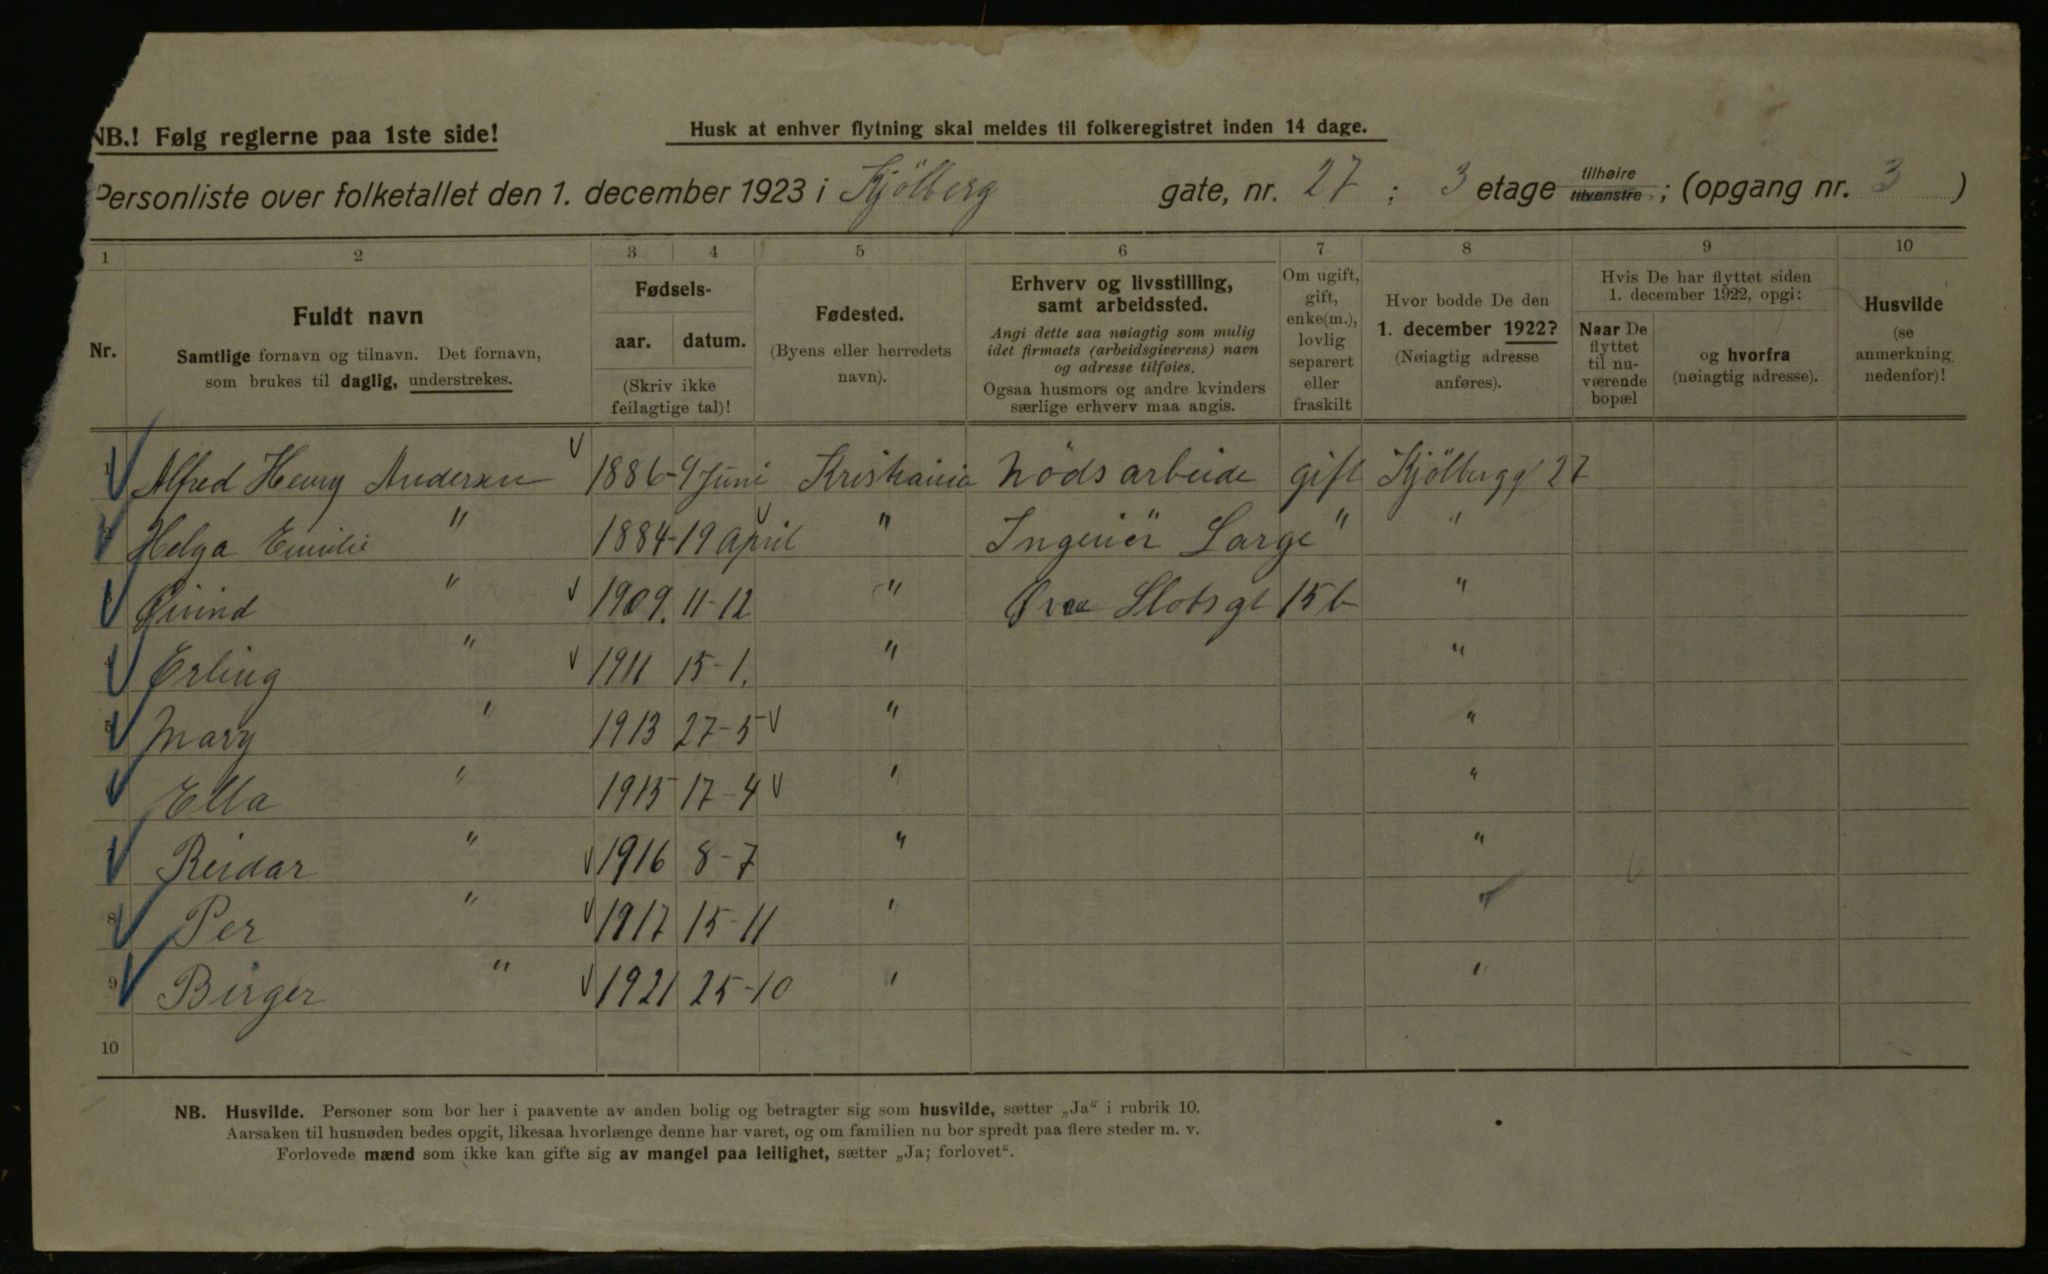 NB.! Følg reglerne paa 1ste side!
Husk at enhver flytning skal meldes til folkeregistret inden 14 dage.
Personliste over folketallet den 1. december 1923 i Kjölberg gate, nr. 27; 3 etage tilhøire tilvenstre; (opgang nr. 3)
1 2 3 4 5 6 7 8 9 10
Nr.
Fuldt navn
Samtlige fornavn og tilnavn. Det fornavn,
som brukes til daglig, understrekes.
Fødsels-
aar. datum.
(Skriv ikke
feilagtige tal)!
Fødested.
(Byens eller herredets
navn).
Erhverv og livsstilling,
samt arbeidssted.
Angi dette saa nøiagtig som mulig
idet firmaets (arbeidsgiverens) navn
og adresse tilføies.
Ogsaa husmors og andre kvinders
særlige erhverv maa angis.
Om ugift,
gift,
enke(m.),
lovlig
separert
eller
fraskilt
Hvor bodde De den
1. december 1922?
(Nøiagtig adresse
anføres).
Hvis De har flyttet siden
1. december 1922, opgi:
Naar De
flyttet
til nu-
værende
bopæl
og hvorfra
(nøiagtig adresse).
Husvilde
(se
anmerkning
nedenfor)!
1 Alfred Henry Andersen 1886 - 4 Juni Kristiania Nödsarbeide gift Kjölbergg 27
2 Helga Emilie " 1884 - 19 April " Ingeniör Large " "
3 Öivind " 1909. 11-12 " Øvre Slotsgt 15 b "
4 Erling " 1911 15-1. " "
5 Mary " 1913 27-5 " "
6 Ella " 1915 17-4 " "
7 Reidar " 1916 8-7 " "
8 Per " 1917 15-11 " "
9 Birger " 1921 25-10 " "
10
NB. Husvilde. Personer som bor her i paavente av anden bolig og betragter sig som husvilde, sætter „Ja“ i rubrik 10.
Aarsaken til husnøden bedes opgit, likesaa hvorlænge denne har varet, og om familien nu bor spredt paa flere steder m. v.
Forlovede mænd som ikke kan gifte sig av mangel paa leilighet, sætter „Ja; forlovet“.